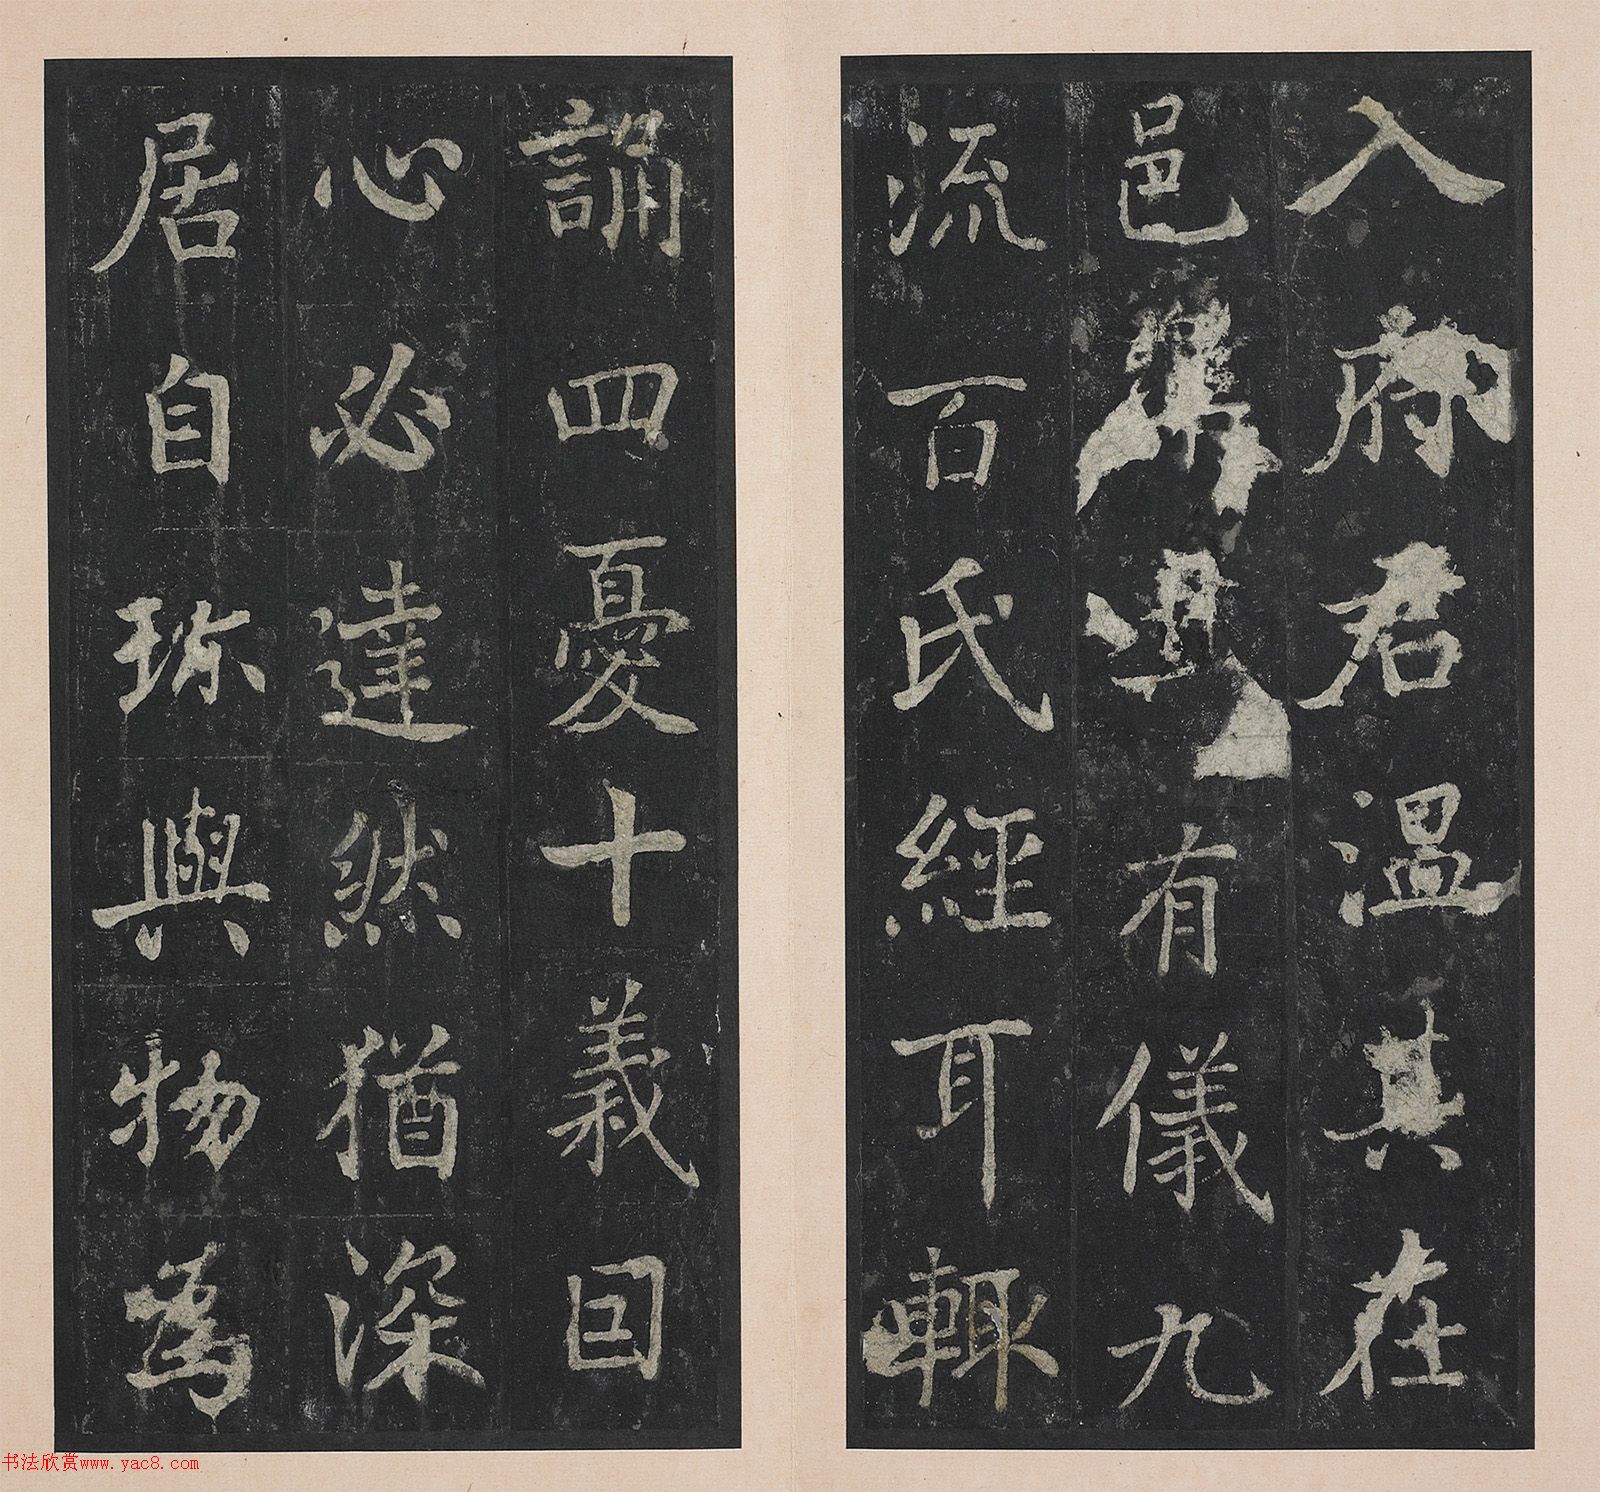 入府君溫其在
邑渠選有儀九
流百氏經耳輒
誦四憂十義因
心必達然猶深
居自珎與物爲
书法欣赏www.yac8.com